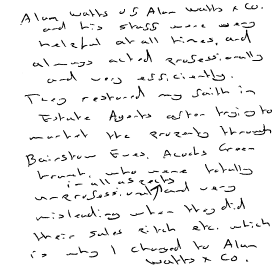 Alan Watts of Alan Watts x Co.
and his staff were very
helpful at all times, and
always acted professionally
and very efficiently.
They restored my faith in
Estate Agents after trying to
market the property through
Bairstow Eves, Acocks Green
branch, who were totally
in all aspects
unprofessional, and very
misleading when they did
their sales pitch etc. which
is why I changed to Alan
Watts x Co.